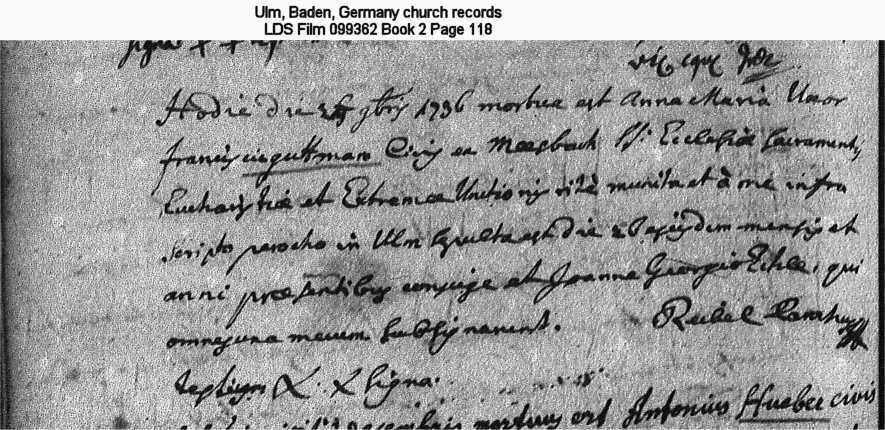 Ulm, Baden, Germany church records
LDS Film 099362 Book 2 Page 118
signa
Hodie die 9bris 1736 mortua est Anna Maria Uxor
francisci guttman Civis ex Moesbach SS: Ecclesiæ sacramentis
Eucharistiæ et Extremæ Unctionis ritè munita et à me infra
scripto parocho in Ulm sepulta est die 26 ejusdem mensis et
anni præsentibus conjuge et Joanne Georgio Echle, qui
omnes una mecum subsignarunt.
testium X. X signa.
mortuus est Antonius Hueber civis